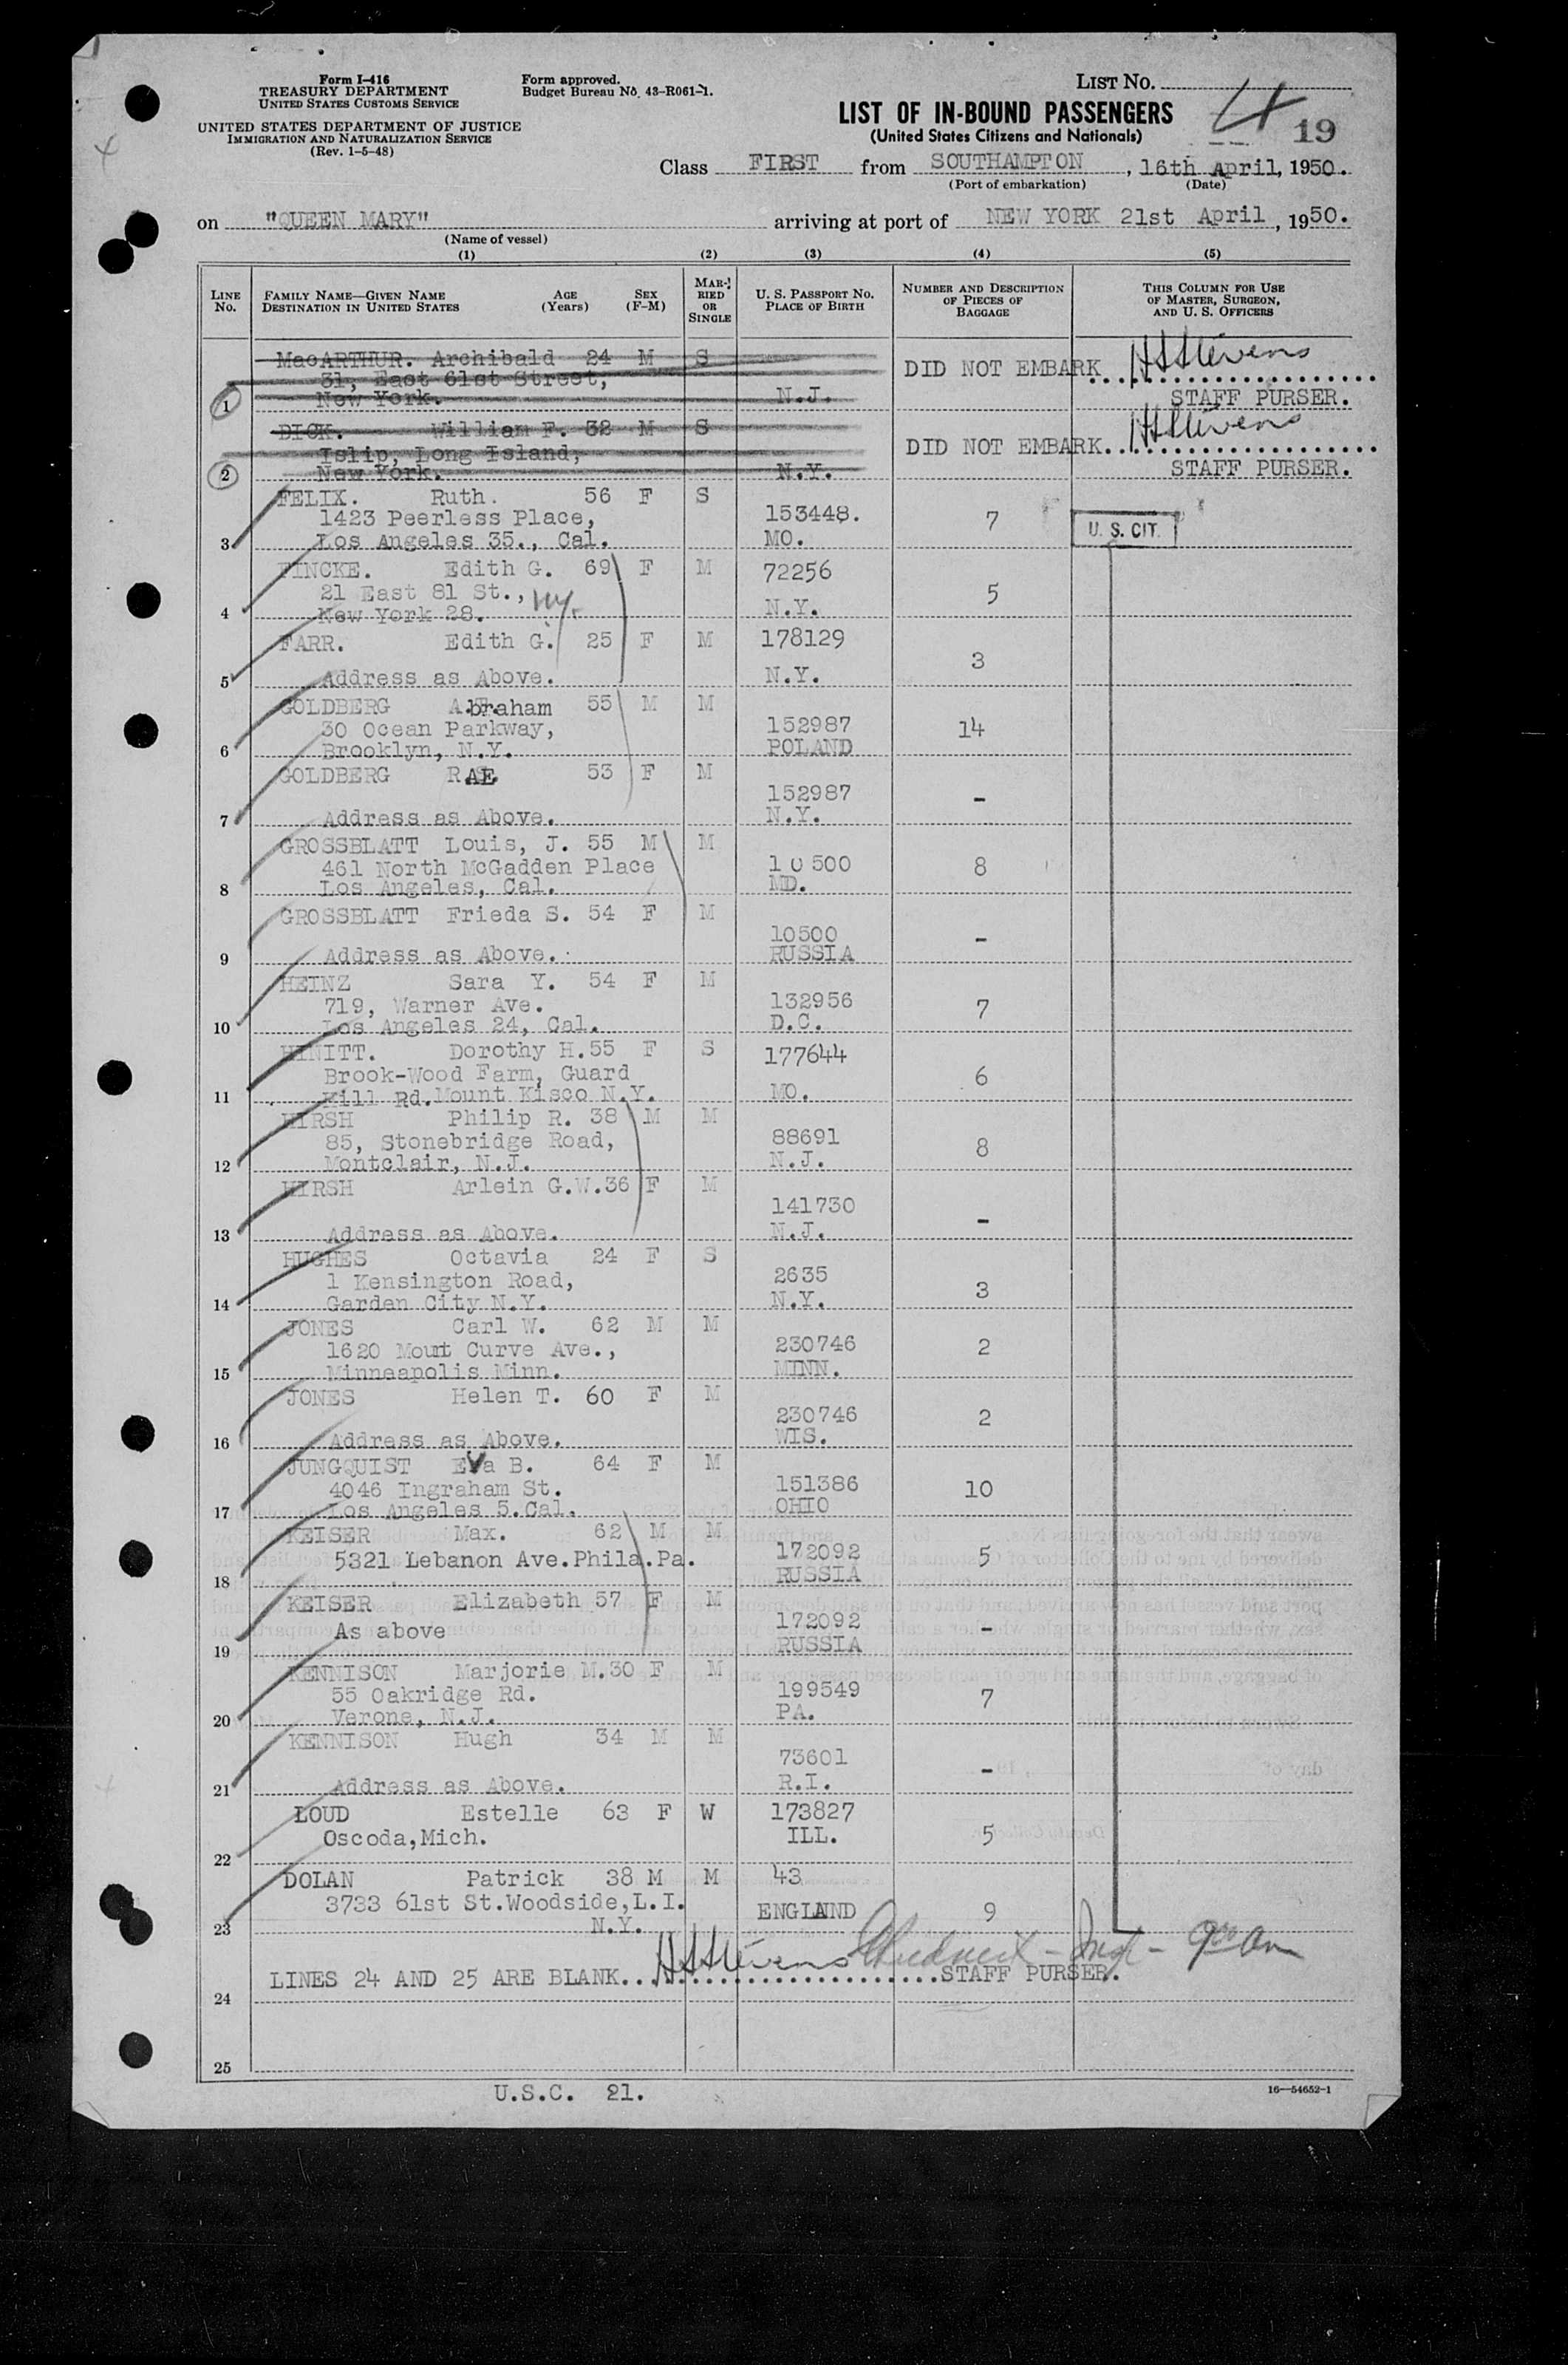 Form I-416
TREASURY DEPARTMENT
UNITED STATES CUSTOMS SERVICE
UNITED STATES DEPARTMENT OF JUSTICE
IMMIGRATION AND NATURALIZATION SERVICE
(Rev. 1-5-48)
Form approved.
Budget Bureau No. 43-R061-1.
LIST NO.
LIST OF IN-BOUND PASSENGERS
(United States Citizens and Nationals)
4
19
Class FIRST from SOUTHAMPTON, 16th April, 1950.
(Port of embarkation) (Date)
on "QUEEN MARY" arriving at port of NEW YORK 21st April, 1950.
(Name of vessel)
(1) (2) (3) (4) (5)
LINE NO. FAMILY NAME—GIVEN NAME DESTINATION IN UNITED STATES AGE (Years) SEX (F-M) MARRIED OR SINGLE U. S. PASSPORT NO. PLACE OF BIRTH NUMBER AND DESCRIPTION OF PIECES OF BAGGAGE THIS COLUMN FOR USE OF MASTER, SURGEON, AND U. S. OFFICERS
MacARTHUR. Archibald 24 M S DID NOT EMBARK HSStevens
31, East 61st Street,
1 New York. N.J. STAFF PURSER.
DICK. William F. 32 M S DID NOT EMBARK HSStevens
Islip, Long Island,
2 New York. N.Y. STAFF PURSER.
FELIX. Ruth. 56 F S
1423 Peerless Place, 153448. 7 U. S. CIT.
3 Los Angeles 35., Cal. MO.
FINCKE. Edith G. 69 F M 72256
21 East 81 St., NY. 5
4 New York 28. N.Y.
FARR. Edith G. 25 F M 178129
3
5 Address as Above. N.Y.
GOLDBERG Abraham 55 M M
30 Ocean Parkway, 152987 14
6 Brooklyn, N.Y. POLAND
GOLDBERG RAE 53 F M
152987 -
7 Address as Above. N.Y.
GROSSBLATT Louis, J. 55 M M
461 North McGadden Place 10500 8
8 Los Angeles, Cal. MD.
GROSSBLATT Frieda S. 54 F M
10500 -
9 Address as Above. RUSSIA
HEINZ Sara Y. 54 F M
719, Warner Ave. 132956 7
10 Los Angeles 24, Cal. D.C.
HINITT. Dorothy H. 55 F S 177644
Brook-Wood Farm, Guard 6
11 Hill Rd. Mount Kisco N.Y. MO.
HIRSH Philip R. 38 M M
85, Stonebridge Road, 88691 8
12 Montclair, N.J. N.J.
HIRSH Arlein G.W. 36 F M
141730 -
13 Address as Above. N.J.
HUGHES Octavia 24 F S
1 Kensington Road, 2635 3
14 Garden City N.Y. N.Y.
JONES Carl W. 62 M M
1620 Mount Curve Ave., 230746 2
15 Minneapolis Minn. MINN.
JONES Helen T. 60 F M
230746 2
16 Address as Above. WIS.
JUNGQUIST Eva B. 64 F M
4046 Ingraham St. 151386 10
17 Los Angeles 5. Cal. OHIO
KEISER Max. 62 M M
5321 Lebanon Ave. Phila. Pa. 172092 5
18 RUSSIA
KEISER Elizabeth 57 F M
As above 172092 -
19 RUSSIA
KENNISON Marjorie M. 30 F M
55 Oakridge Rd. 199549 7
20 Verone, N.J. PA.
KENNISON Hugh 34 M M
73601 -
21 Address as Above. R.I.
LOUD Estelle 63 F W 173827
Oscoda, Mich. ILL. 5
22
DOLAN Patrick 38 M M 43
3733 61st St. Woodside, L.I. ENGLAND 9
23 N.Y.
LINES 24 AND 25 ARE BLANK. HSStevens STAFF PURSER.
24
25
U.S.C. 21.
16—54652-1